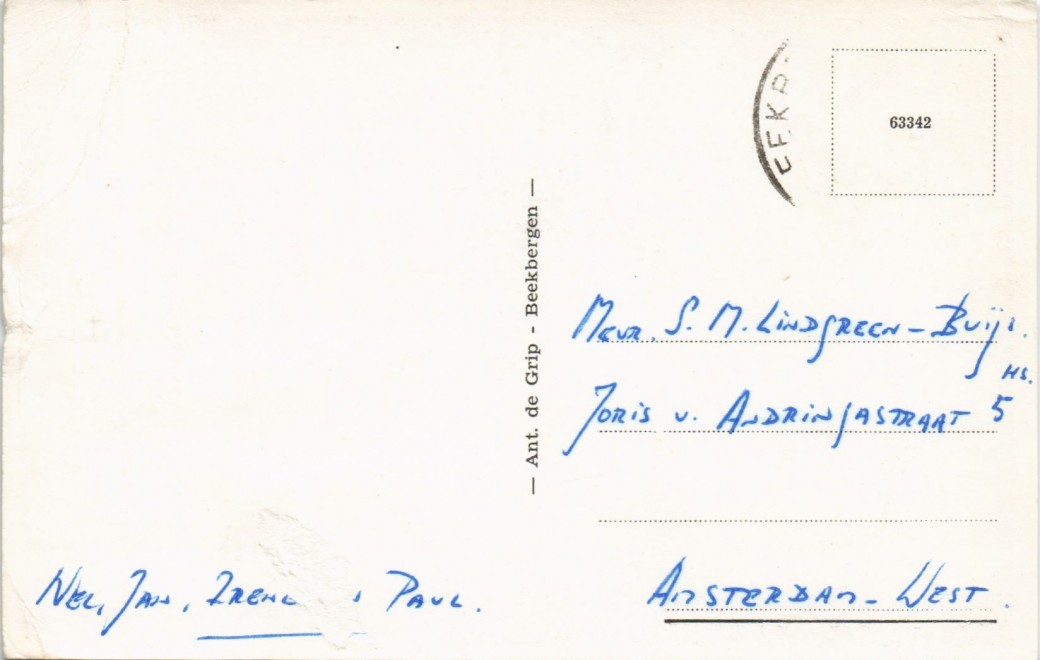 63342
— Ant. de Grip - Beekbergen —
Mevr. S. M. Lindgreen-Buijs.
Hs.
Joris v. Andringastraat 5
Nel, Jan, Irene Paul.
Amsterdam-West.